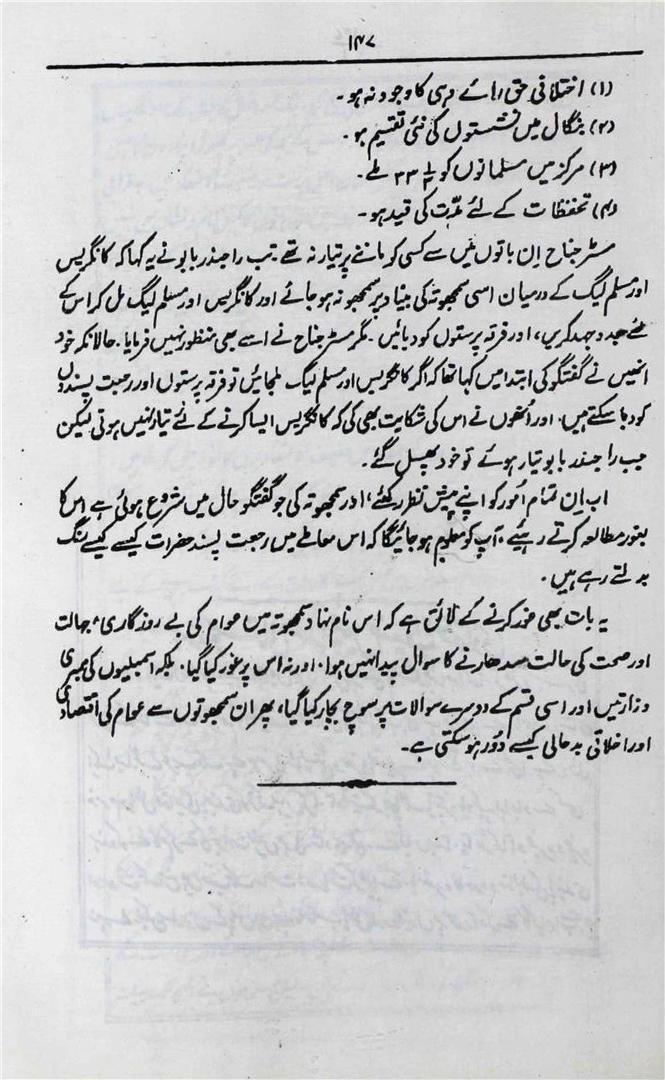 ۱۴۷
(۱) اختلافی حق رائے دہی کا وجود نہ ہو۔
(۲) بنگال میں نشستوں کی نئی تقسیم ہو۔
(۳) مرکز میں مسلمانوں کو ۳۳ ۱/۳ ملے۔
(۴) تحفظات کے لئے مدّت کی قید ہو۔
مسٹر جناح اِن باتوں میں سے کسی کو ماننے پر تیار نہ تھے۔ تب راجندر بابو نے یہ کہا کہ کانگریس
اور مسلم لیگ کے درمیان اسی سمجھوتہ کی بنیاد پر سمجھوتہ ہو جائے اور کانگریس اور مسلم لیگ مل کر اس کے
لئے جدوجہد کریں، اور فرقہ پرستوں کو دبائیں۔ مگر مسٹر جناح نے اسے بھی منظور نہیں فرمایا۔ حالانکہ خود
انھیں نے گفتگو کی ابتدا میں کہا تھا کہ اگر کانگریس اور مسلم لیگ ملجائیں تو فرقہ پرستوں اور رجعت پسندوں
کو دبا سکتے ہیں۔ اور اُنھوں نے اس کی شکایت بھی کی کہ کانگریس ایسا کرنے کے لئے تیار نہیں ہوتی لیکن
جب راجندر بابو تیار ہوئے تو خود پھسل گئے۔
اب اِن تمام اُمور کو اپنے پیش نظر رکھئے، اور سمجھوتہ کی جو گفتگو حال میں شروع ہوئی ہے اس کا
بغور مطالعہ کرتے رہیئے۔ آپ کو معلوم ہو جائیگا کہ اس معاملے میں رجعت پسند حضرات کیسے کیسے رنگ
بدلتے رہے ہیں۔
یہ بات بھی غور کرنے کے لائق ہے کہ اس نام نہاد سمجھوتہ میں عوام کی بے روزگاری، جہالت
اور صحت کی حالت سدھارنے کا سوال پیدا نہیں ہوا۔ اور نہ اس پر غور کیا گیا۔ بلکہ اسمبلیوں کی ممبری
وزارتیں اور اسی قسم کے دوسرے سوالات پر سوچ بچار کیا گیا، پھر ان سمجھوتوں سے عوام کی اقتصادی
اور اخلاقی بدحالی کیسے دُور ہو سکتی ہے۔